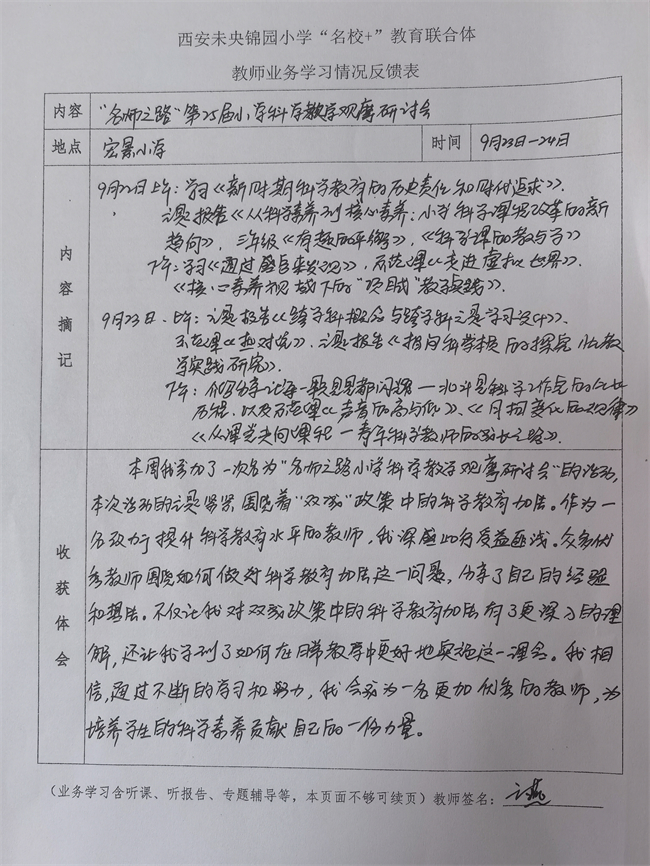 西安未央锦园小学“名校+”教育联合体
教师业务学习情况反馈表
内容 “名师之路”第25届小学科学教学观摩研讨会
地点 宏景小学 时间 9月23日—24日
内容摘记
9月22日上午：学习《新时期科学教育的历史责任和时代追求》.
主题报告《从科学素养到核心素养：小学科学课程改革的新
趋向》，三年级《有趣的平衡》，《科学课的教与学》
下午：学习《通过 发现》，示范课《走进虚拟世界》.
《核心素养视域下的“项目式”教学实践》.
9月23日.上午：主题报告《跨学科概念与跨学科主题学习设计》、
示范课《热对流》.主题报告《指向科学 的探究 教
学实践研究》.
下午：让每一颗星星都闪耀—
历程.以及示范课《声音的高与低》、《月相变化的规律》
《从课堂走向课程—青年科学教师的成长之路》.
收获体会
本周我参加了一次名为“名师之路小学科学教学观摩研讨会”的活动，
本次活动的主题紧紧围绕着“双减”政策中的科学教育加法。作为一
名致力于提升科学教育水平的教师，我深感此行受益匪浅。众多优
秀教师围绕如何做好科学教育加法这一问题，分享了自己的经验
和想法。不仅让我对双减政策中的科学教育加法有了更深入的理
解，还让我学到了如何在日常教学中更好地实施这一理念。我相
信，通过不断的学习和努力，我会成为一名更加优秀的教师，为
培养学生的科学素养贡献自己的一份力量。
（业务学习含听课、听报告、专题辅导等，本页面不够可续页）教师签名：